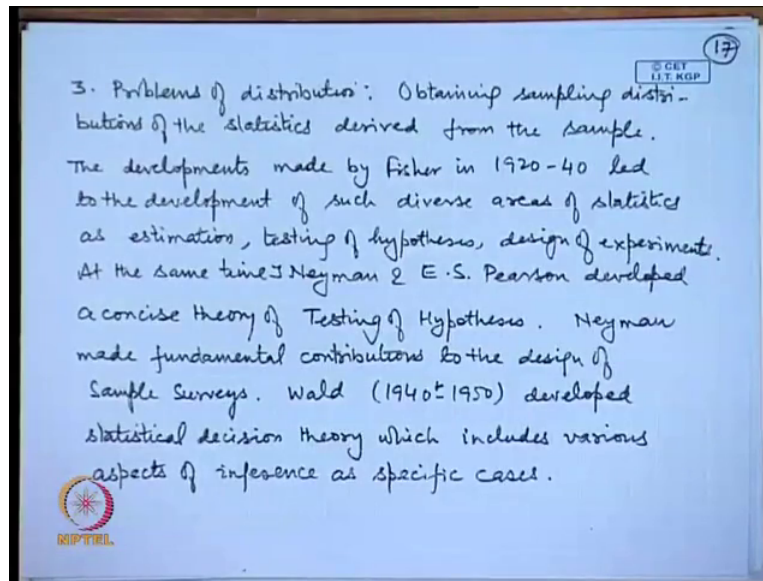 17
© CET
I.I.T. KGP
3. Problems of distribution: Obtaining sampling distri-
butions of the statistics derived from the sample.
The developments made by Fisher in 1920-40 led
to the development of such diverse areas of statistics
as estimation, testing of hypotheses, design of experiments.
At the same time J Neyman & E.S. Pearson developed
a concise theory of Testing of Hypothesis. Neyman
made fundamental contributions to the design of
Sample Surveys. Wald (1940-1950) developed
statistical decision theory which includes various
aspects of inference as specific cases.
NPTEL